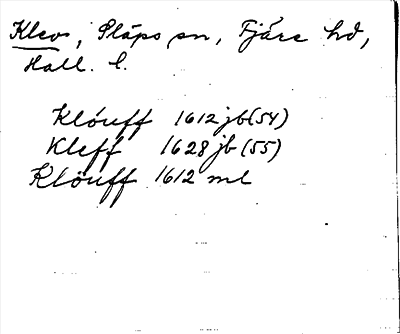 Klevs, Släps sn, Fjäre hd,
Hall. l.
Klöuff 1612 jb (54)
Kleff 1628 jb (55)
Klöuff 1612 ml